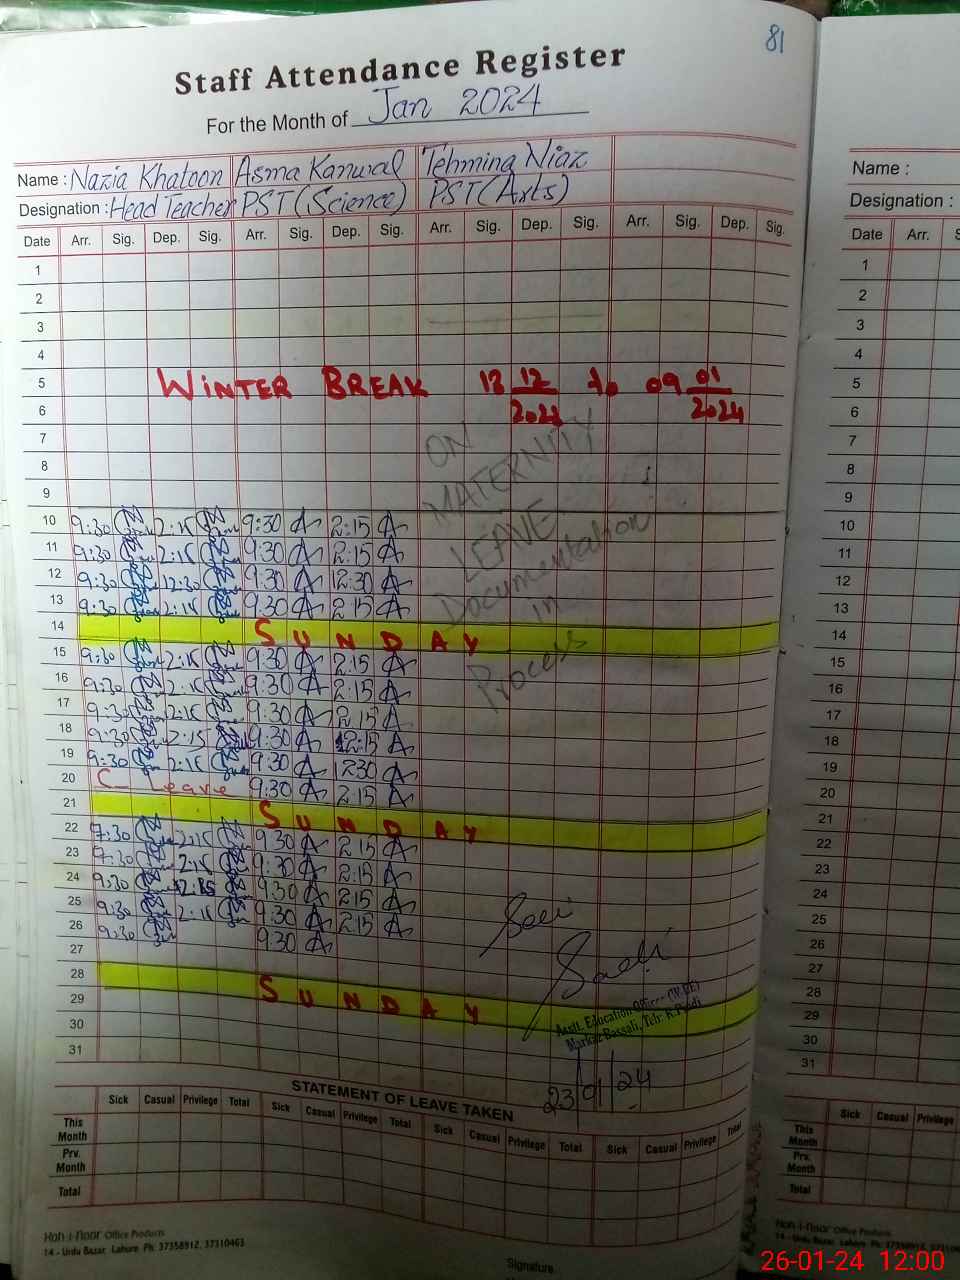 81
Staff Attendance Register
For the Month of Jan 2024
Name : Nazia Khatoon Asma Kanwal Tehmina Niaz
Designation : Head Teacher PST (Science) PST (Arts)
Date Arr. Sig. Dep. Sig. Arr. Sig. Dep. Sig. Arr. Sig. Dep. Sig. Arr. Sig. Dep. Sig.
1
2
3
4
5 WINTER BREAK 13 12 to 09 01
6 2023 2024
7
8 ON
9 MATERNITY
10 9:30 2:15 9:30 2:15
LEAVE
11 9:30 2:15 9:30 2:15
Documentation
12 9:30 12:30 9:30 12:30
in
13 9:30 2:15 9:30 2:15
14 SUNDAY
Process
15 9:30 2:15 9:30 2:15
16 9:30 2:15 9:30 2:15
17 9:30 2:15 9:30 2:15
18 9:30 2:15 9:30 2:15
19 9:30 2:15 9:30 1230
20 C_ Leave 9:30 2:15
21 SUNDAY
22 9:30 2:15 9:30 2:15
23 9:30 2:15 9:30 2:15
24 9:30 2:15 9:30 2:15
25 9:30 2:15 9:30 2:15
26 9:30 9:30
27
28 SUNDAY
29
30
31
Asstt. Education Officer
23/01/24
STATEMENT OF LEAVE TAKEN
Sick Casual Privilege Total Sick Casual Privilege Total Sick Casual Privilege Total Sick Casual Privilege Total
This Month
Prv. Month
Total
Koh-i-Noor Office Products
14 - Urdu Bazar, Lahore Ph: 37358912, 37310463
Signature
Name :
Designation :
Date Arr.
1
2
3
4
5
6
7
8
9
10
11
12
13
14
15
16
17
18
19
20
21
22
23
24
25
26
27
28
29
30
31
Sick Casual Privilege
This Month
Prv. Month
Total
Koh-i-Noor Office Products
14 - Urdu Bazar, Lahore Ph: 37358912,
26-01-24 12:00